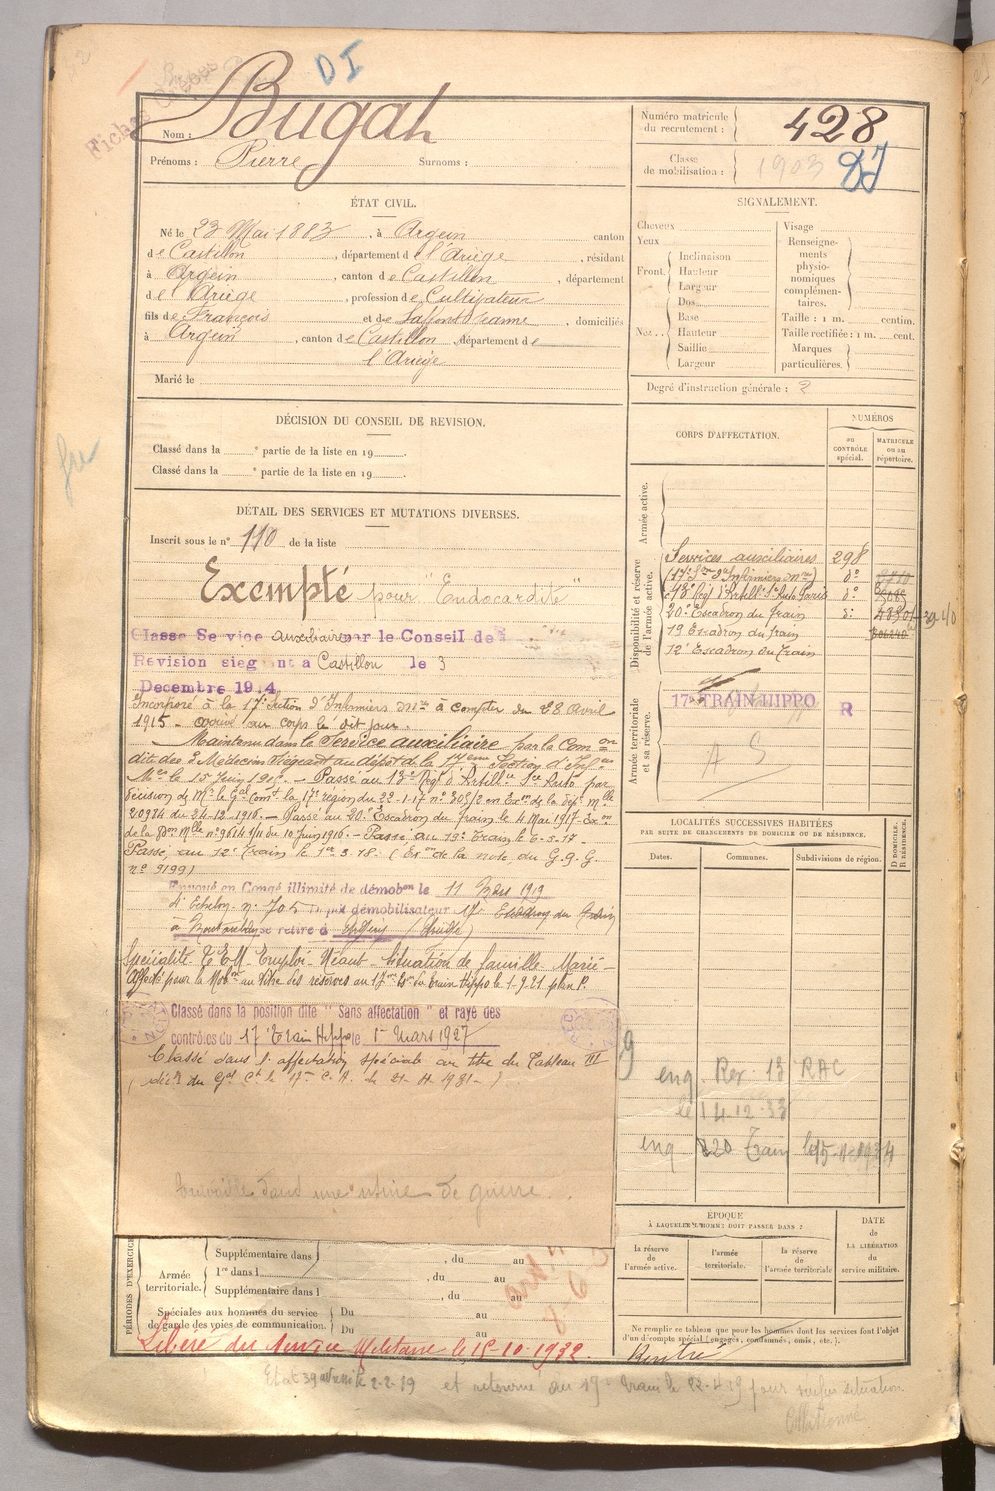 D I
Fiches
Nom : Bugat
Prénoms : Pierre Surnoms :
Numéro matricule du recrutement : 428
Classe de mobilisation : 1903
ÉTAT CIVIL.
Né le 23 Mai 1883, à Argein canton
de Castillon, département de l'Ariège, résidant
à Argein, canton de Castillon, département
de l'Ariège, profession de Cultivateur
fils de François et de Laffont Jeanne, domiciliés
à Argein, canton de Castillon, département de
l'Ariège
Marié le
SIGNALEMENT.
Cheveux
Yeux
Front. Inclinaison
Hauteur
Largeur
Nez. Dos
Base
Hauteur
Saillie
Largeur
Visage
Renseignements physionomiques complémentaires.
Taille : 1 m. centim.
Taille rectifiée : 1 m. cent.
Marques particulières.
Degré d'instruction générale : 2
DÉCISION DU CONSEIL DE REVISION.
Classé dans la e partie de la liste en 19
Classé dans la e partie de la liste en 19
DÉTAIL DES SERVICES ET MUTATIONS DIVERSES.
Inscrit sous le n° 110 de la liste
Exempté pour "Endocardite"
Classé Service auxiliaire par le Conseil de
Révision siégeant à Castillon le 3
Decembre 1914
Incorporé à la 17e Section d'Infirmiers mres à compter du 28 Avril
1915 - arrivé au corps le dit jour.
Maintenu dans le Service auxiliaire par la Comon
dite des 3 Médecins siégeant au dépôt de la 17ème Section d'Infers
Mres le 15 Juin 1915. - Passé au 13e Régt d'Artillie Sce Auto par
décision de Mr le Gal Comt la 17e région du 22-1-17 n° 305/2 en Exon de la dép. mlle
20984 du 24-12-1916. - Passé au 20e Escadron du train le 4 Mai 1917 Exon
de la Don Mlle n° 9614 9/11 du 10 Juin 1916. - Passé au 19e Train le 6-5-17.
Passé au 12e Train le 1er-3-18. (Exon de la note du G.Q.G.
n° 9199)
Envoyé en Congé illimité de démobon le 11 Mars 1919
4e Echelon. n° 705 Dépôt démobilisateur 17e Escadron du Train
à Montauban se retire à Argein (Ariège)
Spécialité T.E.M. Emploi - Néant - Situation de famille - Marié -
Affecté pour la Mobon au titre des réserves au 17me Eson du Train Hippo le 1-9-21 plan P.
Classé dans la position dite " Sans affectation " et rayé des
contrôles du 17 Train Hippo le 1er Mars 1927
Classé dans l'affectation spéciale au titre du Tableau III
(décon du Gal Ct le 17me C.A. du 21-11-1931-)
travaille dans une usine de guerre.
CORPS D'AFFECTATION.
NUMÉROS
AU CONTRÔLE spécial.
MATRICULE OU AU répertoire.
Armée active.
Disponibilité et réserve de l'armée active.
Services auxiliaires 298
(17e Son d'Infirmiers mres) do
13e Régt d'Artillie Sce Auto Paris do
20e Escadron du train do
19 Escadron du train
12e Escadron du Train
Armée territoriale et sa réserve.
17e TRAIN HIPPO R
A S
LOCALITÉS SUCCESSIVES HABITÉES
PAR SUITE DE CHANGEMENTS DE DOMICILE OU DE RÉSIDENCE.
Dates. Communes. Subdivisions de région. D DOMICILE. R RÉSIDENCE.
eng Rer. 13 RAC
le 14.12.33
enq 220 Train
ÉPOQUE
À LAQUELLE L'HOMME DOIT PASSER DANS :
la réserve de l'armée active.
l'armée territoriale.
la réserve de l'armée territoriale
DATE de LA LIBÉRATION du service militaire.
Ne remplir ce tableau que pour les hommes dont les services font l'objet
d'un décompte spécial (engagés, condamnés, omis, etc.).
PÉRIODES D'EXERCICE
Supplémentaire dans , du au
Armée territoriale. 1re dans l , du au
Supplémentaire dans l , du au
Spéciales aux hommes du service de garde des voies de communication. Du au
Du au
Libéré du Service Militaire le 15-10-1932.
Etat 39 adressé le 2-2-19 et retourné au 19e train le 22-4-19 pour situation